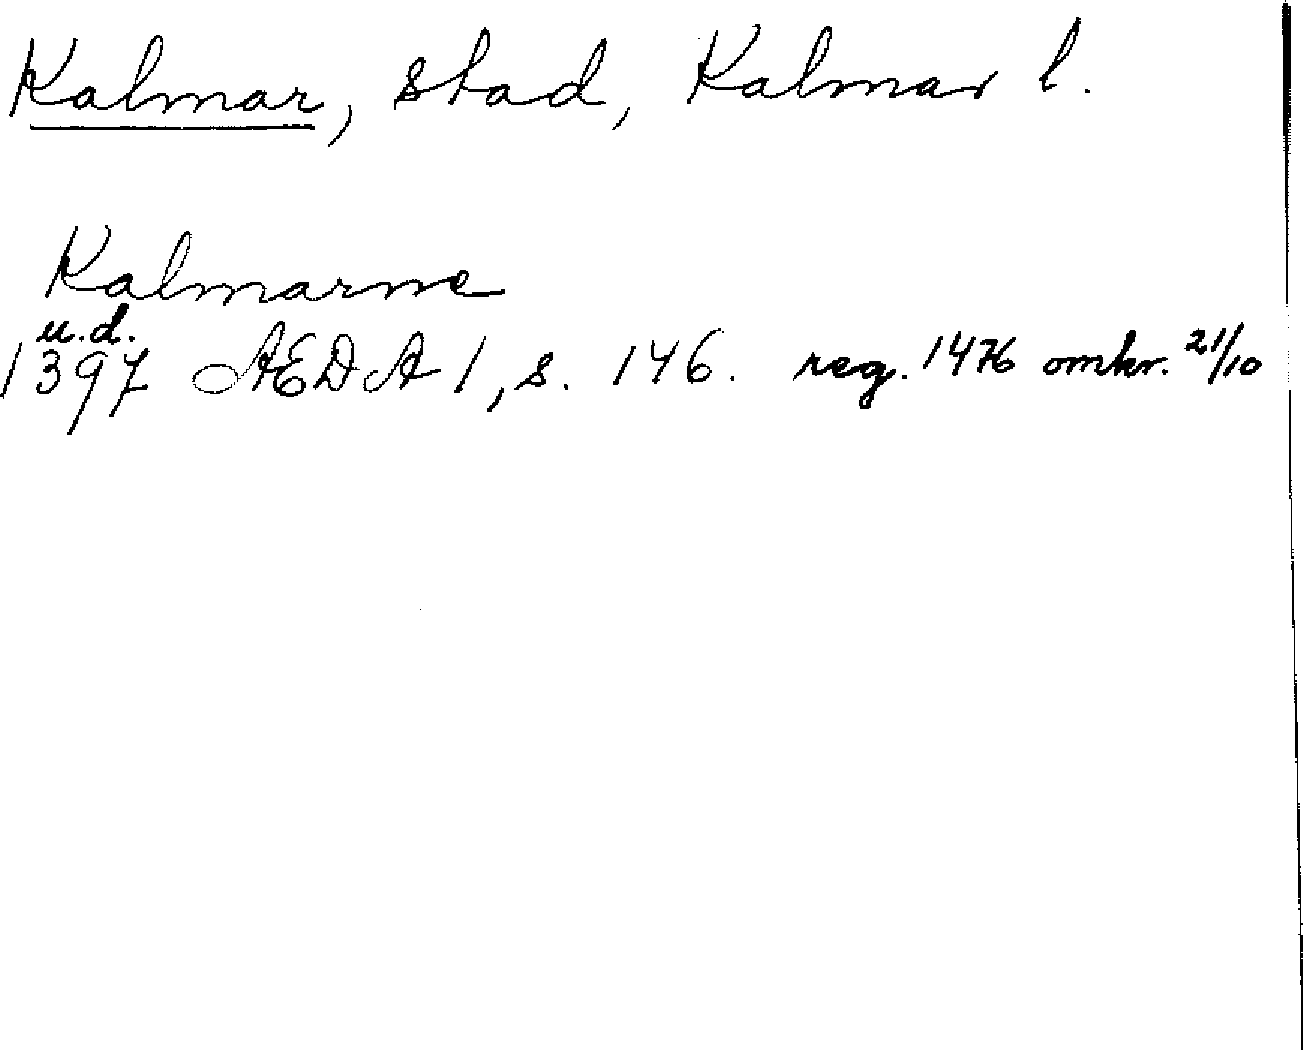 Kalmar, stad, Kalmar l.
Kalmarne
u.d.
1397 ÆDA 1, s. 146. reg. 1476 omkr. 21/10